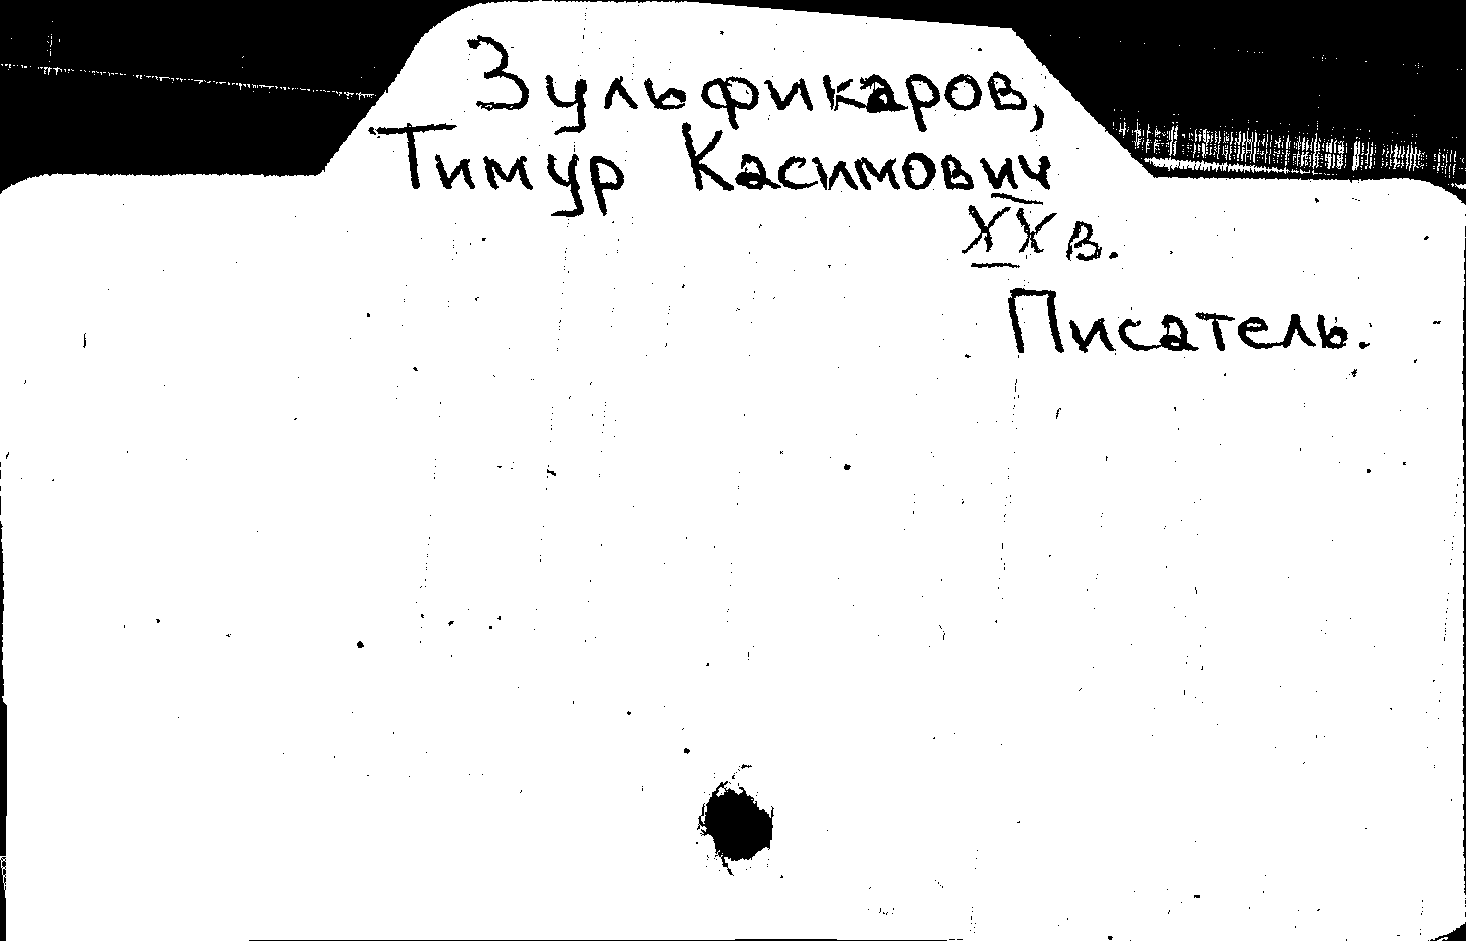 Зульфикаров,
Тимур Касимович
XX в.
Писатель.